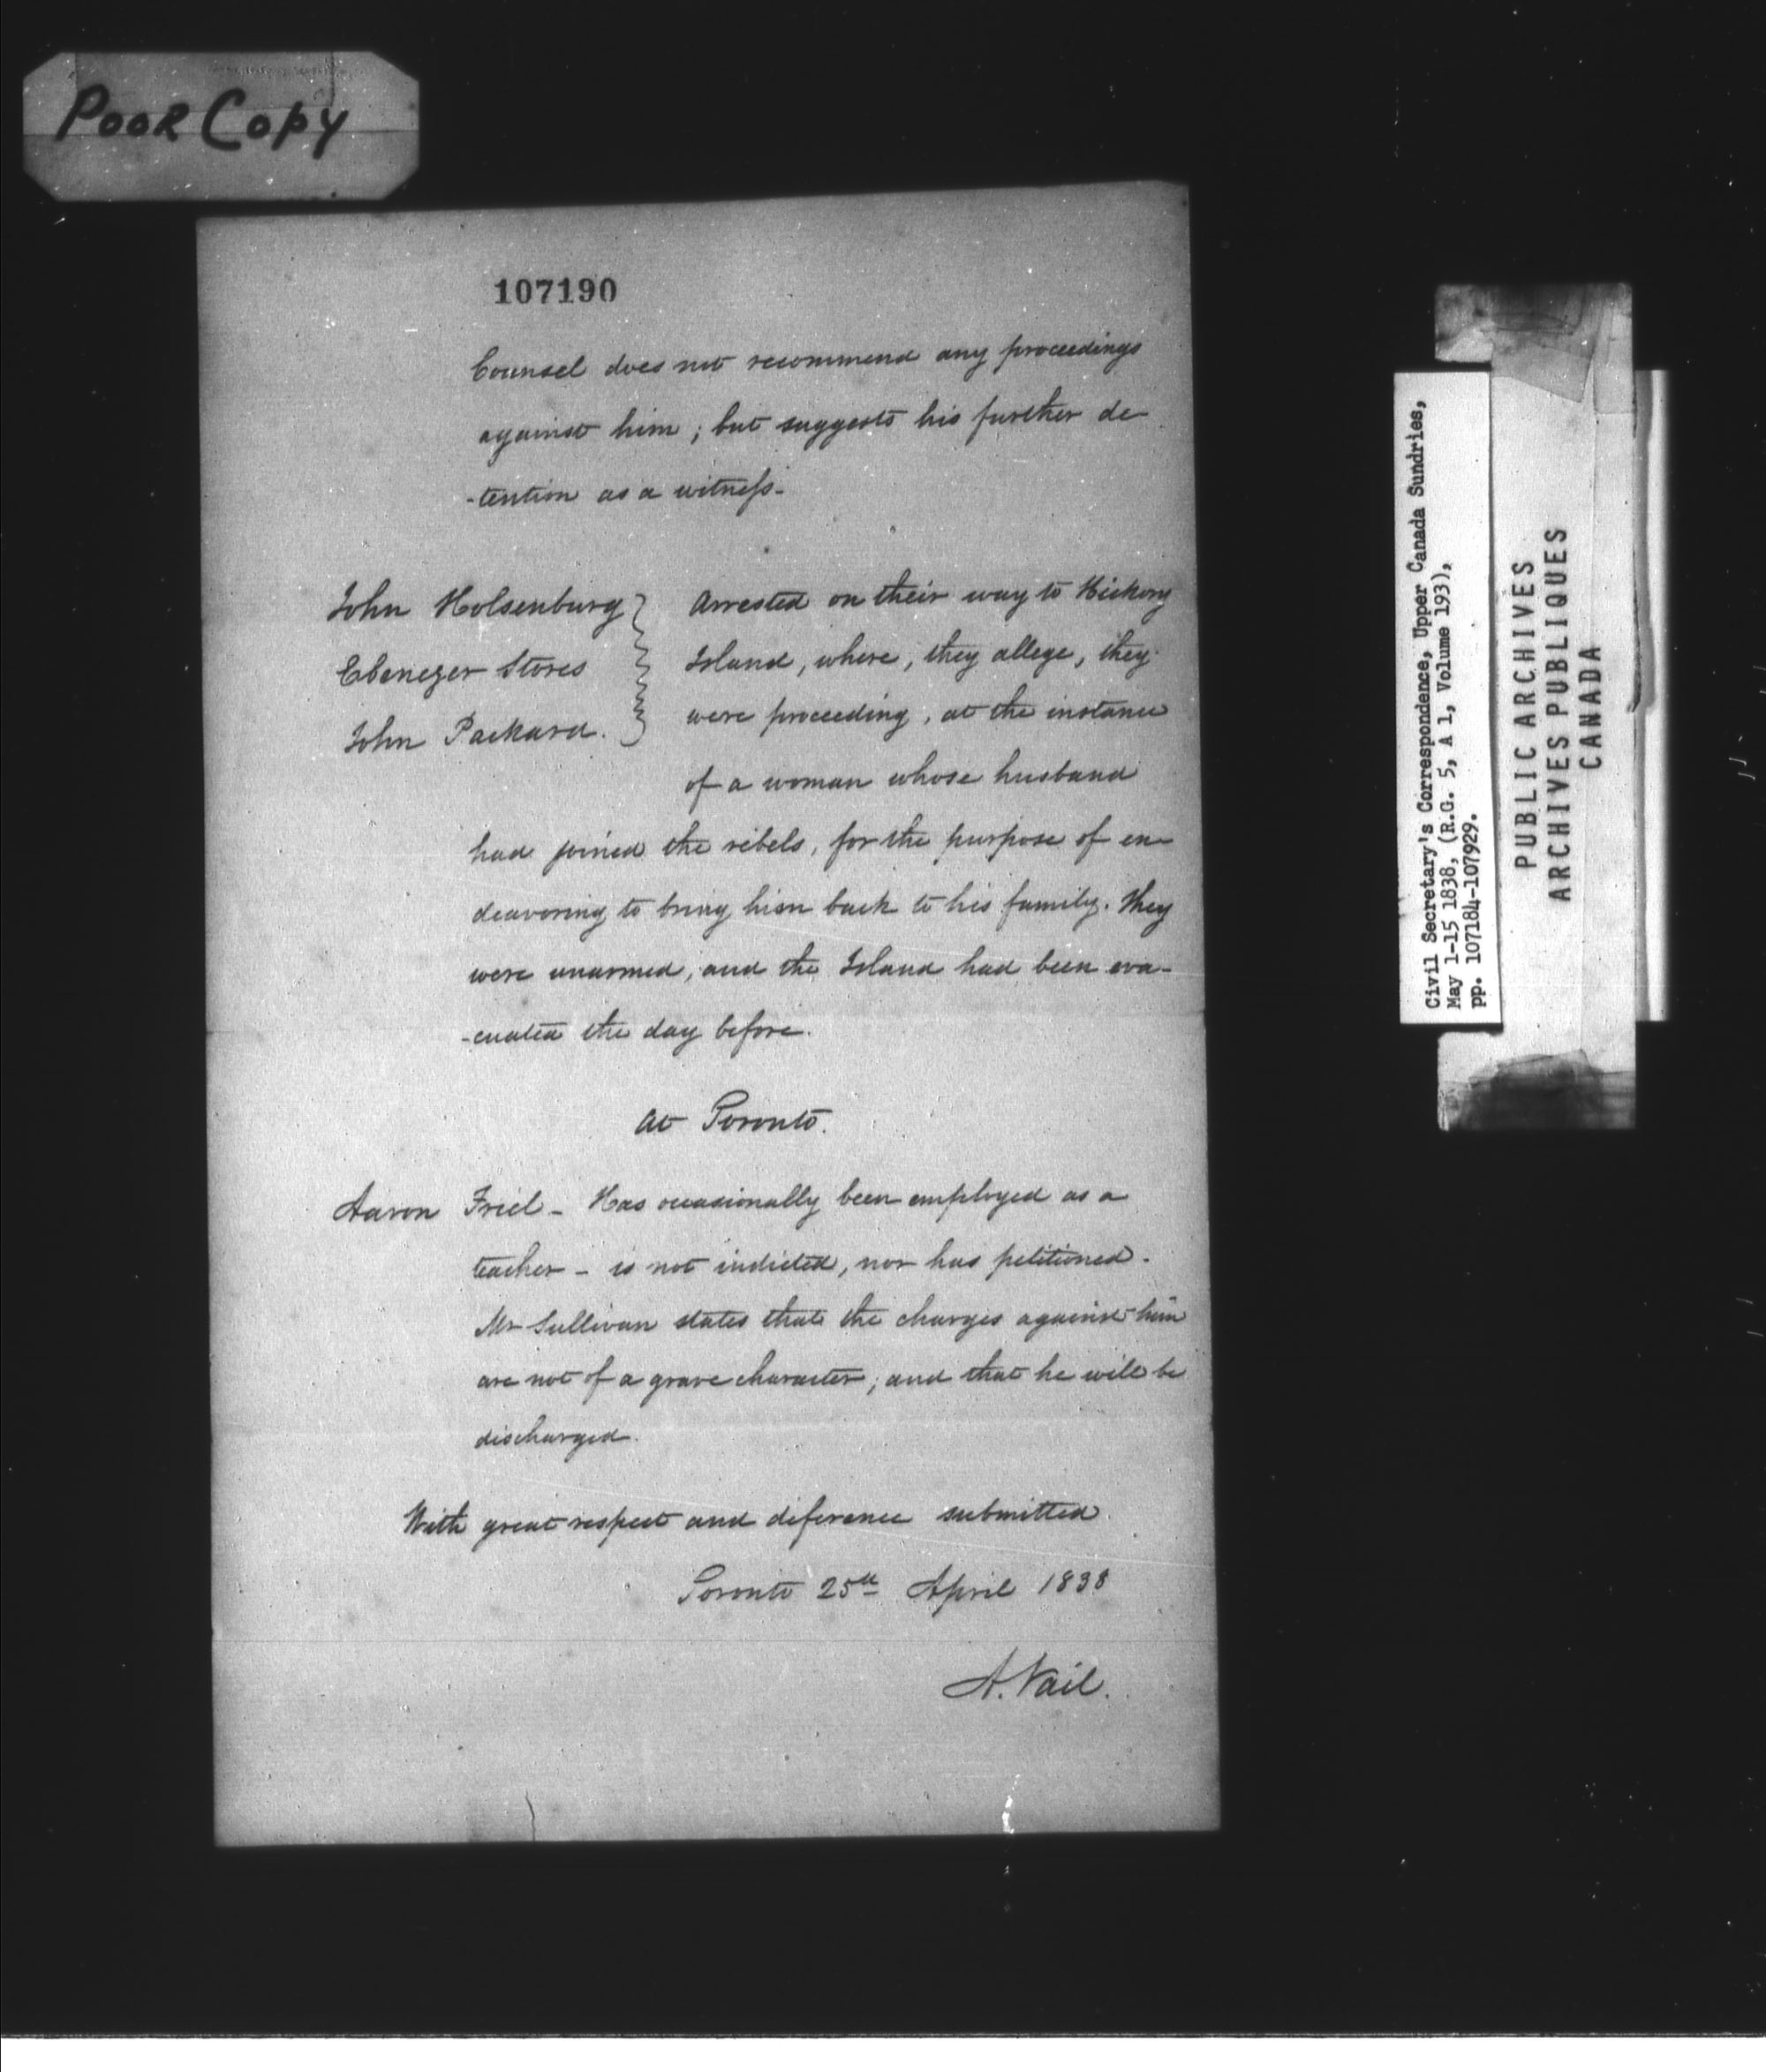 Poor Copy
107190
Counsel does not recommend any proceedings
against him; but suggests his further de-
-tention as a witness.
John Holsenburg
Ebenezer Stores
John Packard.
Arrested on their way to Hickory
Island, where, they allege, they
were proceeding, at the instance
of a woman whose husband
had joined the rebels, for the purpose of en-
deavoring to bring him back to his family. They
were unarmed, and the Island had been eva-
-cuated the day before.
At Toronto.
Aaron Friel - Has occasionally been employed as a
teacher - is not indicted, nor has petitioned.
Mr Sullivan states that the charges against him
are not of a grave character; and that he will be
discharged.
With great respect and deference submitted.
Toronto 25th April 1838
A. Vail.
Civil Secretary's Correspondence, Upper Canada Sundries,
May 1-15 1838, (R.G. 5, A 1, Volume 193),
pp. 107184-107929.
PUBLIC ARCHIVES
ARCHIVES PUBLIQUES
CANADA